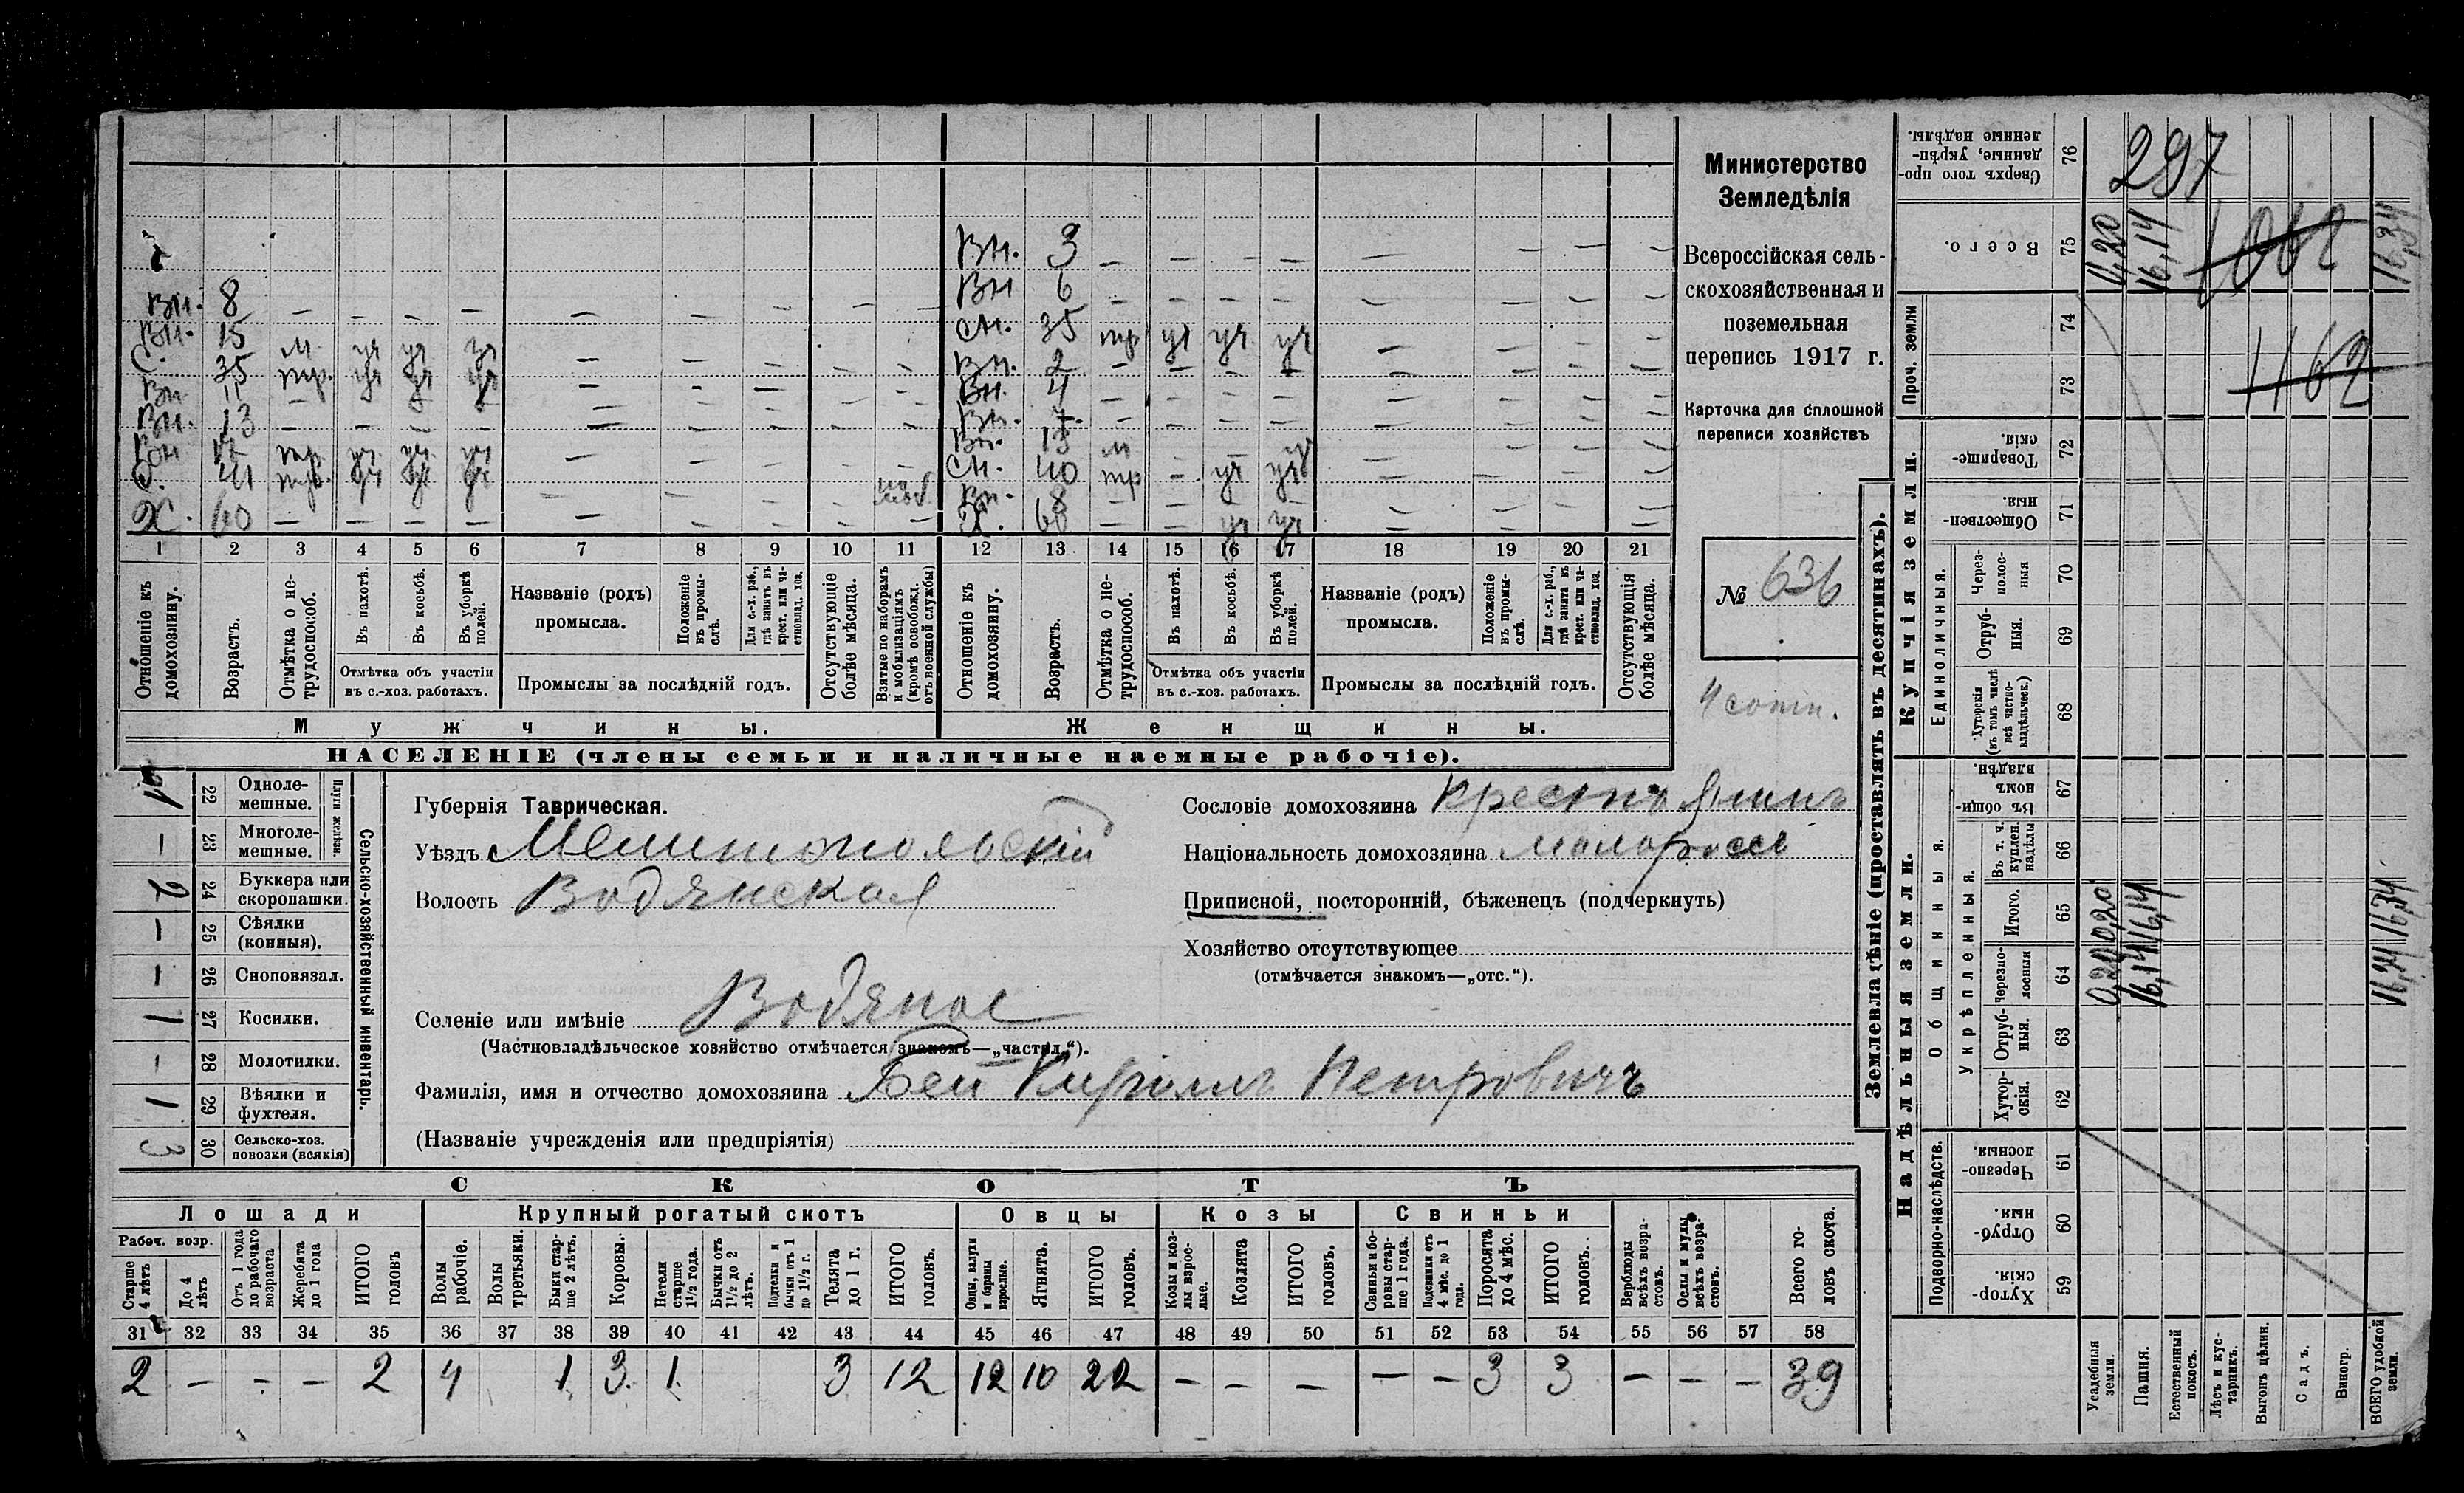 Вн. 3 — — — — — — — —
Вн 6 — — — — — — — —
Вн. 8 — — — — — — — —
Вн. 15 м уч уч уч — — — —
С. 35 тр. уч уч уч — — — —
сн. 35 тр уч уч уч — — — —
Вн 11 —
Вн. 2 — — — —
Вн. 13 — — — —
Вн. 4 — — — —
Вн 17 тр. уч уч уч
С. 41 тр. уч уч уч
Вн. 13 м
сн. 40 тр — уч уч
Вн. 8
Х. 60 — — — — — — — — —
Х. 60 — — уч уч — — — —
1 2 3 4 5 6 7 8 9 10 11 12 13 14 15 16 17 18 19 20 21
Отношеніе къ домохозяину.
Возрастъ.
Отмѣтка о не-трудоспособ.
Въ пахотѣ.
Въ косьбѣ.
Въ уборкѣ полей.
Отмѣтка объ участіи
въ с.-хоз. работахъ.
Названіе (родъ)
промысла.
Положеніе въ промы-слѣ.
Для с.-х. раб., гдѣ занятъ въ крест. или ча-стновлад. хоз.
Промыслы за послѣдній годъ.
Отсутствующіе болѣе мѣсяца.
Взятые по наборамъ и мобилизаціямъ (кромѣ освобожд. отъ военной службы)
Отношеніе къ домохозяину.
Возрастъ.
Отмѣтка о не-трудоспособ.
Въ пахотѣ.
Въ косьбѣ.
Въ уборкѣ полей.
Отмѣтка объ участіи
въ с.-хоз. работахъ.
Названіе (родъ)
промысла.
Положеніе въ промы-слѣ.
Для с.-х. раб., гдѣ занята въ крест. или ча-стновлад. хоз.
Промыслы за послѣдній годъ.
Отсутствующія болѣе мѣсяца.
Мужчины.
Женщины.
НАСЕЛЕНІЕ (члены семьи и наличные наемные рабочіе).
Министерство
Земледѣлія
Всероссійская сель-
скохозяйственная и
поземельная
перепись 1917 г.
Карточка для сплошной
переписи хозяйствъ
№ 636
4 сотн.
Сельско-хозяйственный инвентарь.
Плуги желѣзн.
22 Одноле-мешные.
— 23 Многоле-мешные.
2 24 Буккера или скоропашки.
— 25 Сѣялки (конныя).
— 26 Сноповязал.
1 27 Косилки.
- 28 Молотилки.
1 29 Вѣялки и фухтеля.
3 30 Сельско-хоз. повозки (всякія)
Губернія Таврическая.
Уѣздъ Мелитопольскій
Волость Водянская
Селеніе или имѣніе Водяное
(Частновладѣльческое хозяйство отмѣчается знакомъ—„частн.“).
Фамилія, имя и отчество домохозяина Бей Кириллъ Петровичъ
(Названіе учрежденія или предпріятія)
Сословіе домохозяина Крестьянинъ
Національность домохозяина малороссъ
Приписной, посторонній, бѣженец (подчеркнуть)
Хозяйство отсутствующее
(отмѣчается знакомъ—„отс.“).
СКОТЪ
Лошади
Крупный рогатый скотъ
Овцы
Козы
Свиньи
Рабоч. возр.
Старше 4 лѣтъ
До 4 лѣтъ
Отъ 1 года до рабочаго возраста
Жеребята до 1 года
ИТОГО головъ
Волы рабочіе.
Волы третьяки.
Быки стар-ше 2 лѣтъ.
Коровы.
Нетели старше 1½ года.
Бычки отъ 1½ до 2 лѣтъ.
Подтелки и бычки отъ 1 до 1½ г.
Телята до 1 г.
ИТОГО головъ.
Овцы, валухи и бараны взрослые.
Ягнята.
ИТОГО головъ.
Козы и коз-лы взрос-лые.
Козлята
ИТОГО головъ.
Свиньи и бо-ровы стар-ше 1 года.
Подсвинки отъ 4 мѣс. до 1 года.
Поросята до 4 мѣс.
ИТОГО головъ.
Верблюды всѣхъ возра-стовъ.
Ослы и мулы всѣхъ возра-стовъ.
Всего го-ловъ скота.
31 32 33 34 35 36 37 38 39 40 41 42 43 44 45 46 47 48 49 50 51 52 53 54 55 56 57 58
2 — — — 2 4 1 3 1 3 12 12 10 22 — — — — — 3 3 — — — 39
Землевладѣніе (проставлять въ десятинахъ).
Надѣльныя земли.
Купчія земли.
Проч. земли
Подворно-наслѣдств.
Общинныя.
Укрѣпленныя.
Единоличныя.
Сверхъ того про-данные, укрѣп-ленные надѣлы. 76
Всего. 75
74
73
Товарище-скія. 72
Обществен-ныя. 71
Через-полос-ныя 70
Отруб-ныя. 69
Хуторскія (въ томъ числѣ всѣ частно-владѣльческ.) 68
Въ общин-номъ владѣн. 67
Въ т. ч. куплен. надѣлы 66
Итого. 65
Черезпо-лосныя 64
Отруб-ныя. 63
Хутор-скія. 62
Черезпо-лосныя. 61
Отруб-ныя. 60
Хутор-скія. 59
Усадебныя земли.
Пашня.
Естественный покосъ.
Лѣсъ и кус-тарникъ.
Выгонъ цѣлин.
Садъ.
Виногр.
ВСЕГО удобной земли.
297
1062
1162
16,14
16,34
0,20 0,20
16,14 16,14
16,34 16,34